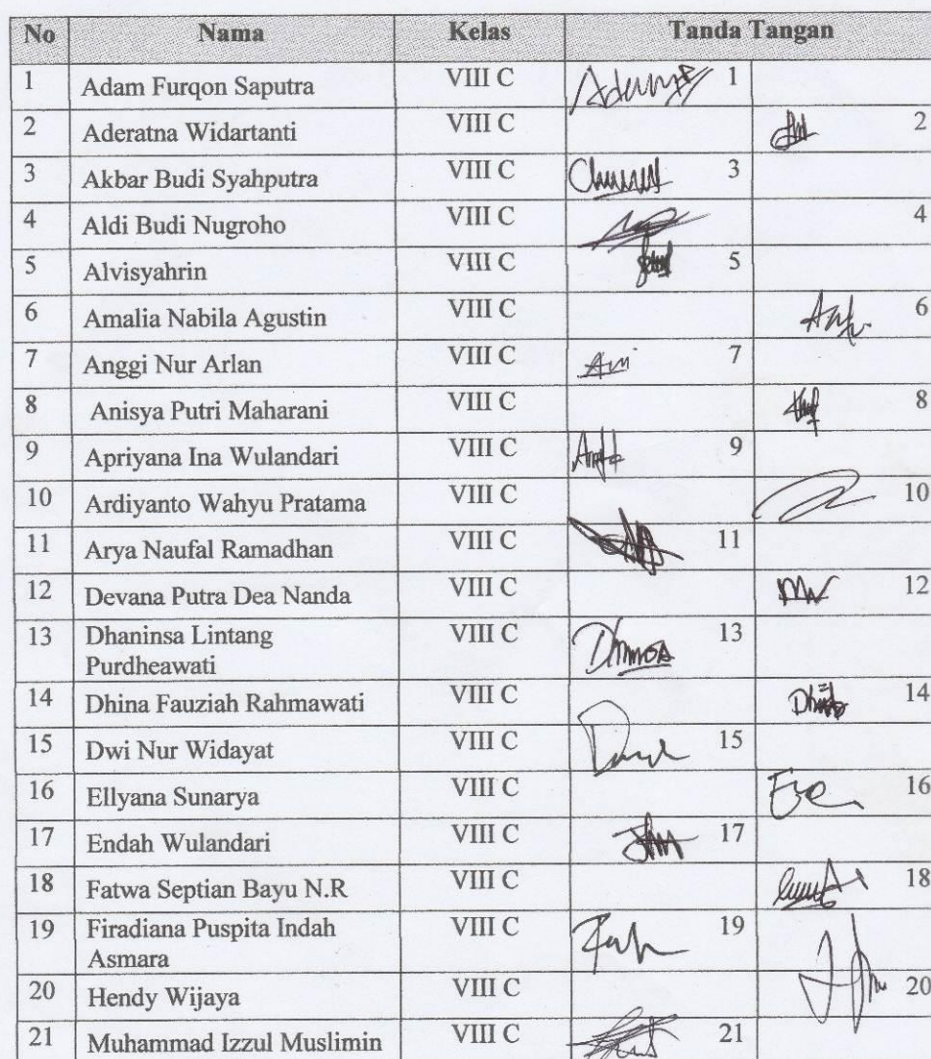 No Nama Kelas Tanda Tangan
1 Adam Furqon Saputra VIII C 1
2 Aderatna Widartanti VIII C 2
3 Akbar Budi Syahputra VIII C 3
4 Aldi Budi Nugroho VIII C 4
5 Alvisyahrin VIII C 5
6 Amalia Nabila Agustin VIII C 6
7 Anggi Nur Arlan VIII C 7
8 Anisya Putri Maharani VIII C 8
9 Apriyana Ina Wulandari VIII C 9
10 Ardiyanto Wahyu Pratama VIII C 10
11 Arya Naufal Ramadhan VIII C 11
12 Devana Putra Dea Nanda VIII C 12
13 Dhaninsa Lintang VIII C 13
Purdheawati
14 Dhina Fauziah Rahmawati VIII C 14
15 Dwi Nur Widayat VIII C 15
16 Ellyana Sunarya VIII C 16
17 Endah Wulandari VIII C 17
18 Fatwa Septian Bayu N.R VIII C 18
19 Firadiana Puspita Indah VIII C 19
Asmara
20 Hendy Wijaya VIII C 20
21 Muhammad Izzul Muslimin VIII C 21